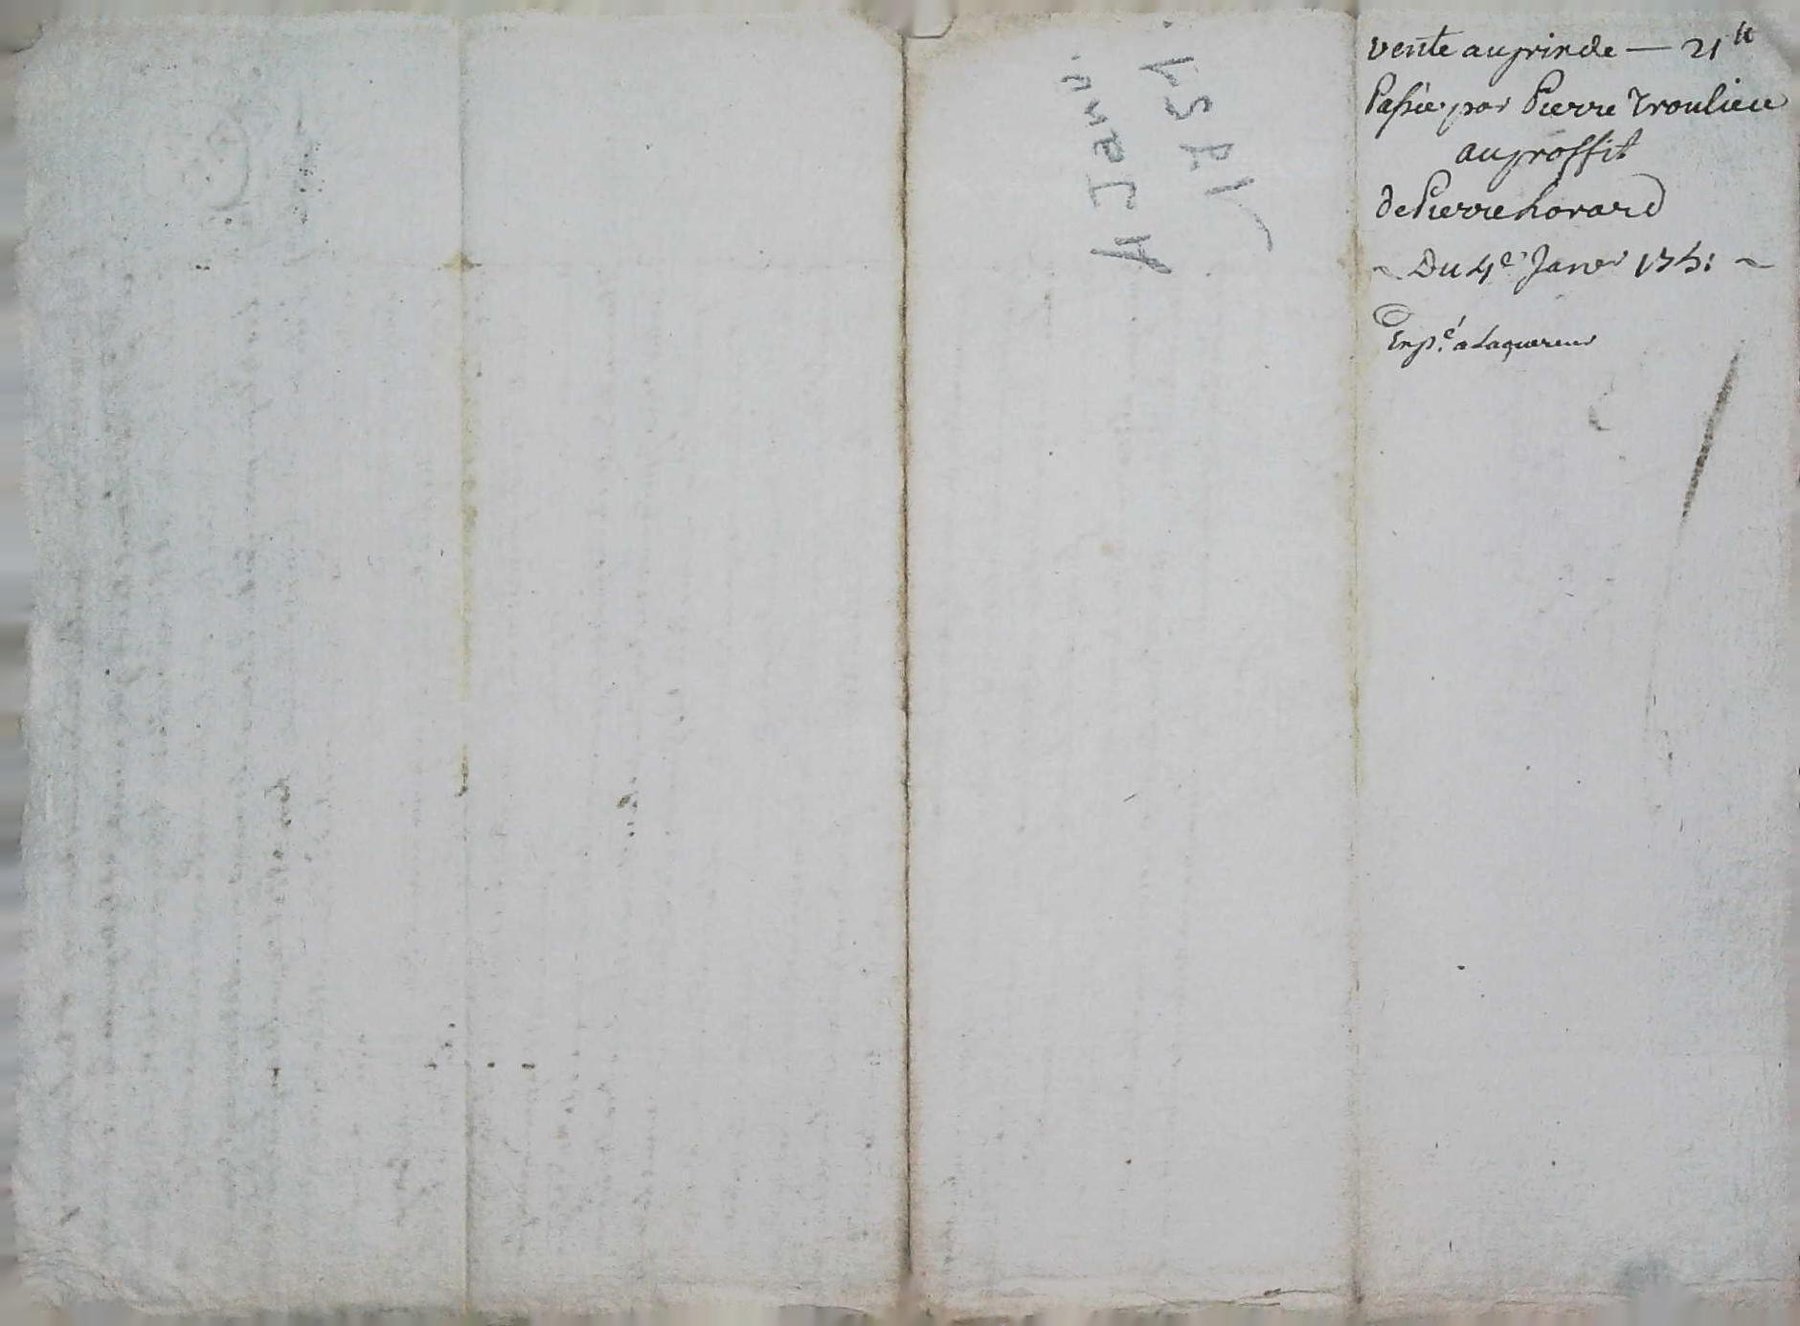 vente au prix de — 21 tt
Passée par Pierre Troulieu
au proffit
de Pierre hovard
~ Du 4e Janvr 1751 ~
Expe. a Laquereur
4 Janv.
1751.